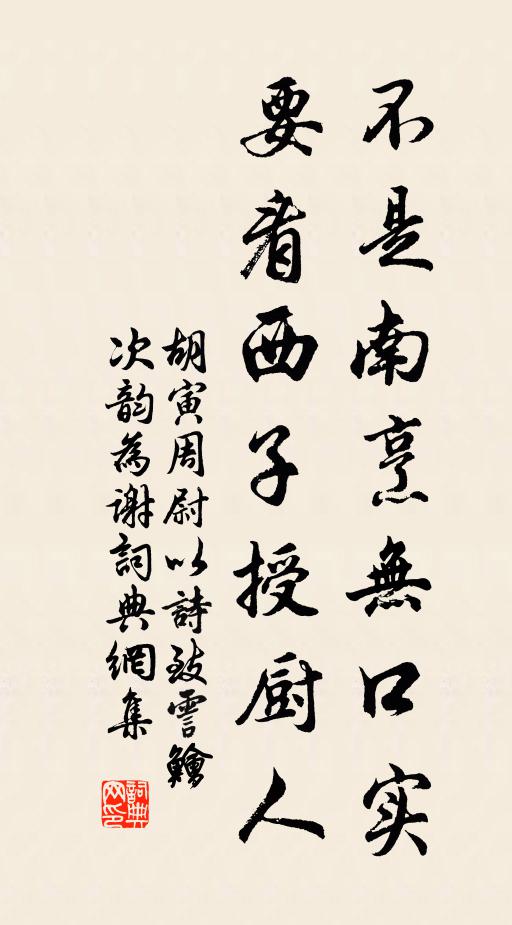 不是南烹無口实
要看西子授厨人
胡寅周尉以詩致雪鱠
次韵為谢詞典網集
詞典网印